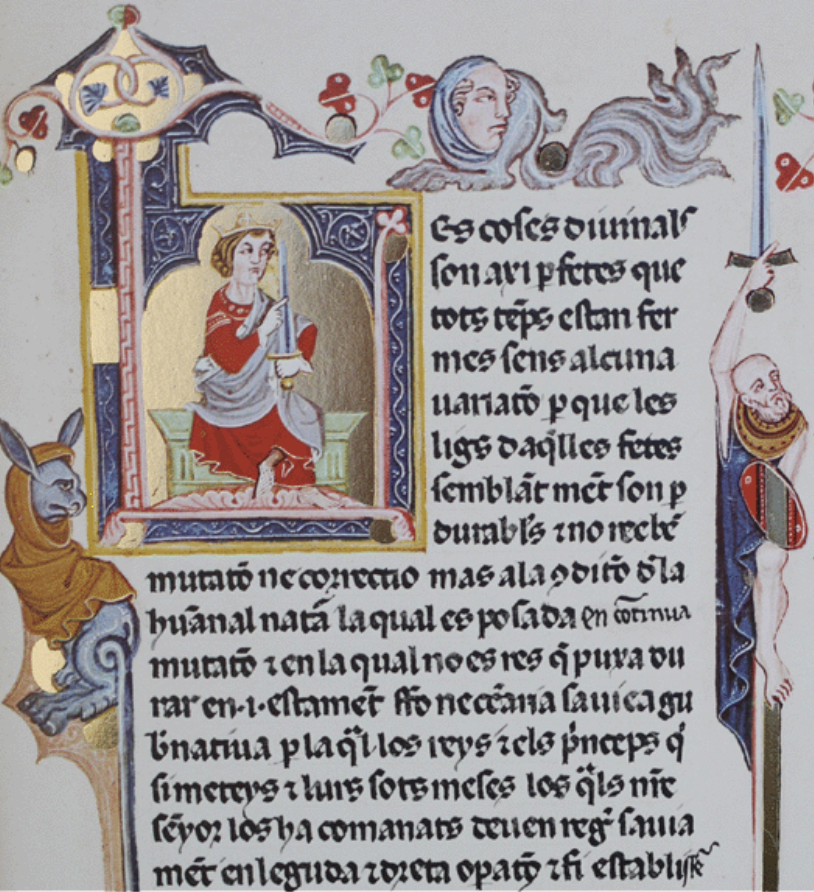 Les coses diuinals
son axi ꝑfetes que
tots tẽps estan fer
mes sens alcuna
uariatõ ꝑ que les
ligs daq̃lles fetes
semblãt mẽt son ꝑ
durabl̃s ⁊ no rebẽ
mutatõ ne correctio mas a la ꝯditõ d̃la
hũanal natã la qual es posada en cõtinua
mutatõ ⁊ en la qual no es res q̃ puxa du
rar en ·i· estamẽt ffo neccẽaria sauiea gu
b̃natiua ꝑ la q̃l los reys ⁊ els p̃nceps q̃
si meteys ⁊ lurs sotsmeses los q̃ls nr̃e
sẽyor los ha comanats deuen reg̃ sauia
mẽt en leguda ⁊ dreta opatõ ⁊ fi establiʃʃe